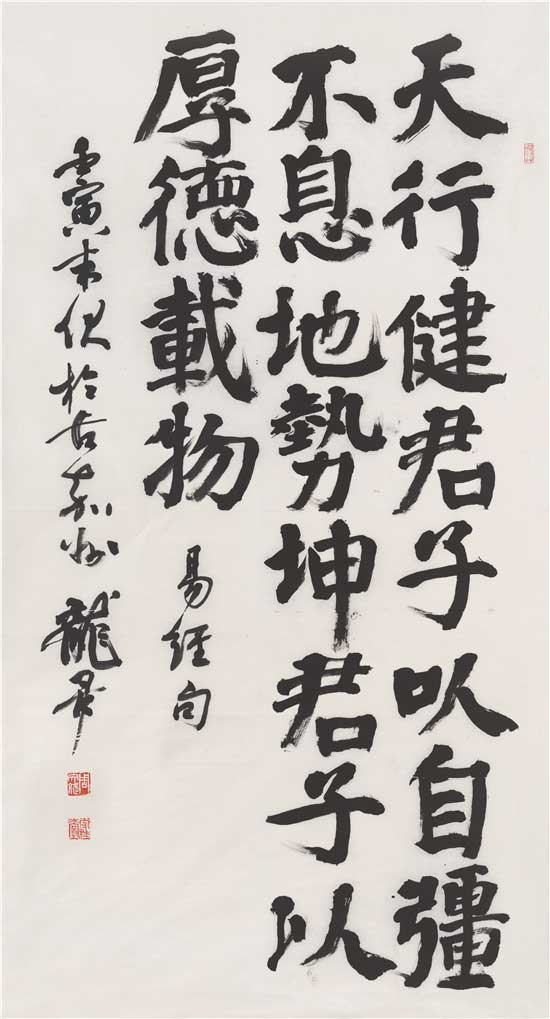 天行健君子以自彊
不息地勢坤君子以
厚德載物
易經句
壬寅末伏於古嘉州龍